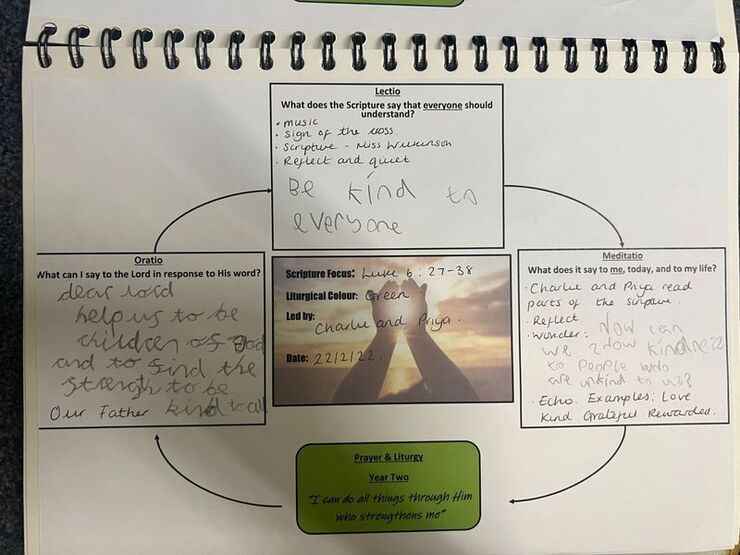 Lectio
What does the Scripture say that everyone should
understand?
• music
• sign of the cross.
• Scripture - Miss Wilkinson
• Reflect and quiet
Be kind to
everyone
Oratio
What can I say to the Lord in response to His word?
dear lord
help us to be
children of god
and to find the
strength to be
Our Father kind to all
Scripture Focus: Luke 6: 27-38
Liturgical Colour: Green
Led by:
Charlie and Priya.
Date: 22/2/22.
Meditatio
What does it say to me, today, and to my life?
• Charlie and Priya read
parts of the scripture.
• Reflect
• Wonder: How can
we show kindness
to people who
are unkind to us?
• Echo. Examples: Love
Kind Grateful Rewarded.
Prayer & Liturgy
Year Two
"I can do all things through Him
who strengthens me"